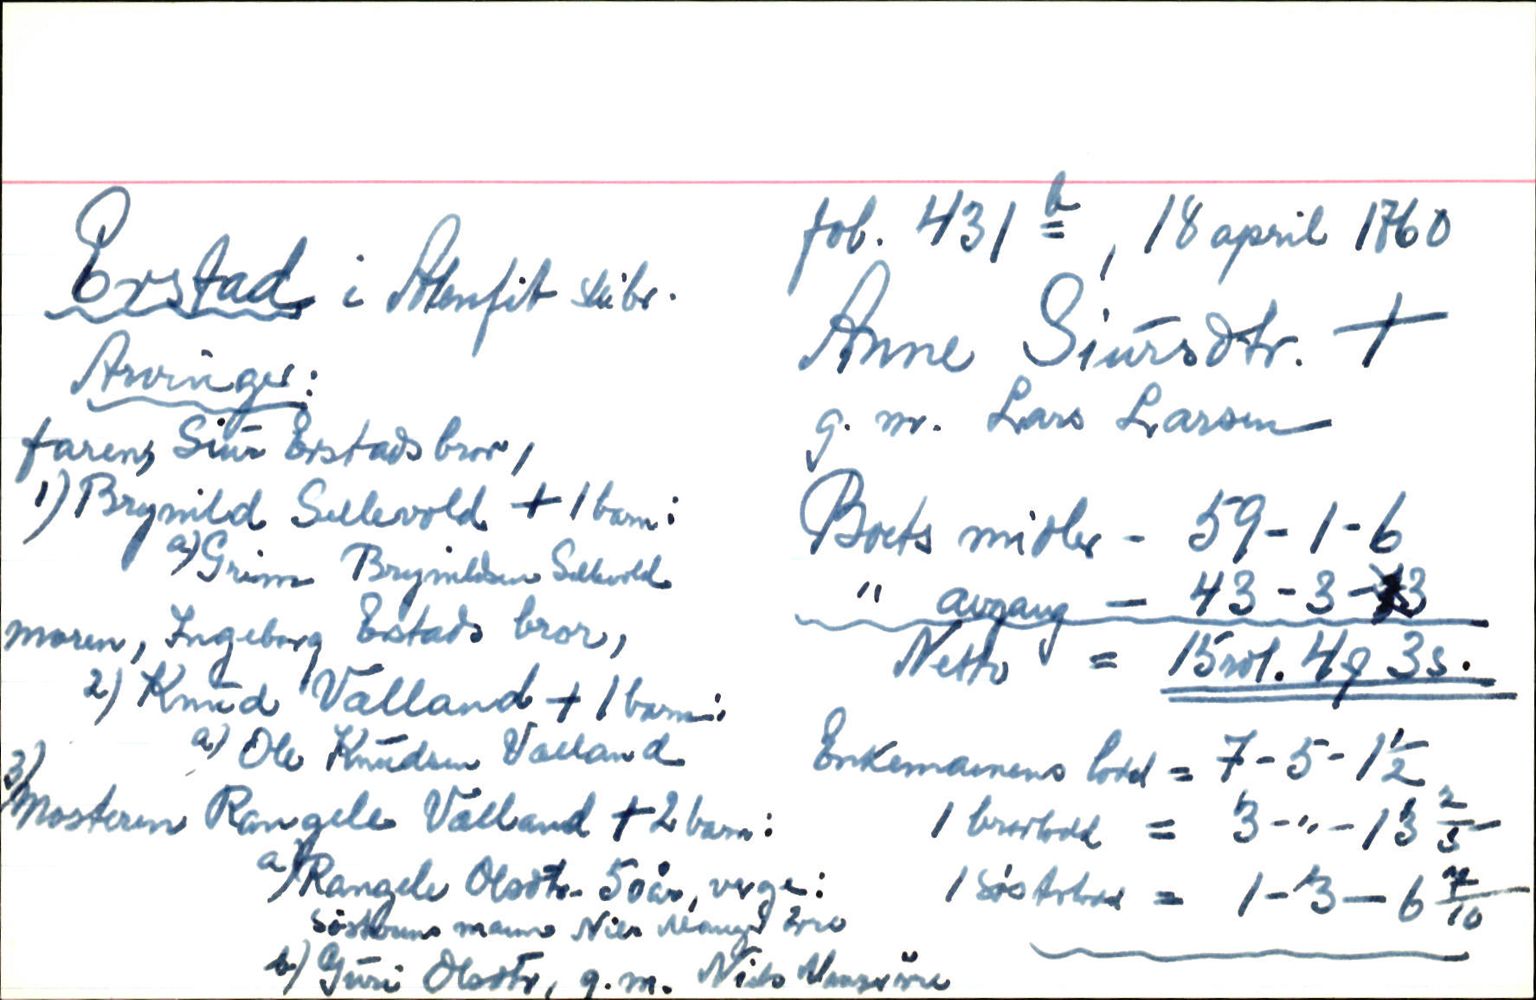 Erstad i Alenfit skibr.
Arvinger:
faren, Siur Erstads bror,
1) Brynild Sellevold + 1 barn:
a) Grim Brynildsen Sellevold
moren, Ingeborg Erstads bror,
2) Knud Valland + 1 barn:
a) Ole Knudsen Valland
3) Mosteren Rangele Valland + 2 barn:
a) Rangele Olsdtr. 50 år, verge:
søsterens mann Nils
b) Guri Olsdtr, g.m. Nils
fol. 431 b, 18 april 1760
Anne Siursdtr. +
g. m. Lars Larsen
Boets midler - 59-1-6
" avgang - 43-3-3
Netto = 15 rdl. 4 q 3 s.
Enkemannens lodd = 7-5-1 1/2
1 brorlodd = 3-"-13 2/5
1 søsterlodd = 1-3-6 7/10